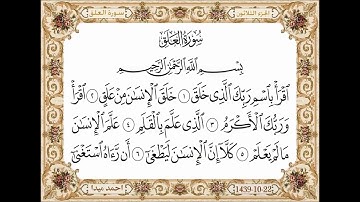 الجزء الثلاثون
سورة العلق
سُورَةُ العَلَقِ
بِسْمِ اللَّهِ الرَّحْمَٰنِ الرَّحِيمِ
ٱقْرَأْ بِٱسْمِ رَبِّكَ ٱلَّذِى خَلَقَ ١ خَلَقَ ٱلْإِنسَٰنَ مِنْ عَلَقٍ ٢ ٱقْرَأْ
وَرَبُّكَ ٱلْأَكْرَمُ ٣ ٱلَّذِى عَلَّمَ بِٱلْقَلَمِ ٤ عَلَّمَ ٱلْإِنسَٰنَ
مَا لَمْ يَعْلَمْ ٥ كَلَّآ إِنَّ ٱلْإِنسَٰنَ لَيَطْغَىٰٓ ٦ أَن رَّءَاهُ ٱسْتَغْنَىٰٓ
احمد ميدا
1439-10-22